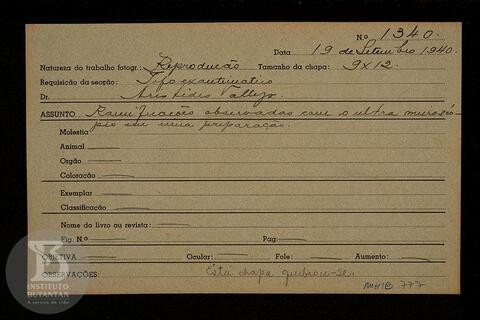 N.o 1340.
Data 19 de Setembro 1940.
Natureza do trabalho fotogr.: Reprodução Tamanho da chapa: 9x12.
Requisição da secção: Tifo exantematico
Dr. Aristides Vallejo.
ASSUNTO Ramificações observadas com o ultra microscó-
pio em uma preparação.
Molestia
Animal
Orgão
Coloração
Exemplar
Classificação
Nome do livro ou revista:
Fig. N.o Pag.
OBJETIVA Ocular: Fole: Aumento:
OBSERVAÇÕES: Esta chapa quebrou-se.
MHIB 777
INSTITUTO
BUTANTAN
A serviço da vida